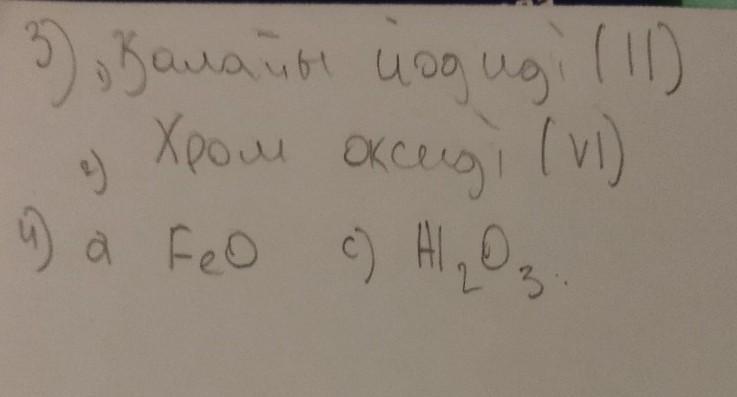 3) 1) Қалайы йодиді (II)
2) Хром оксиді (VI)
4) a FeO c) Al2O3.